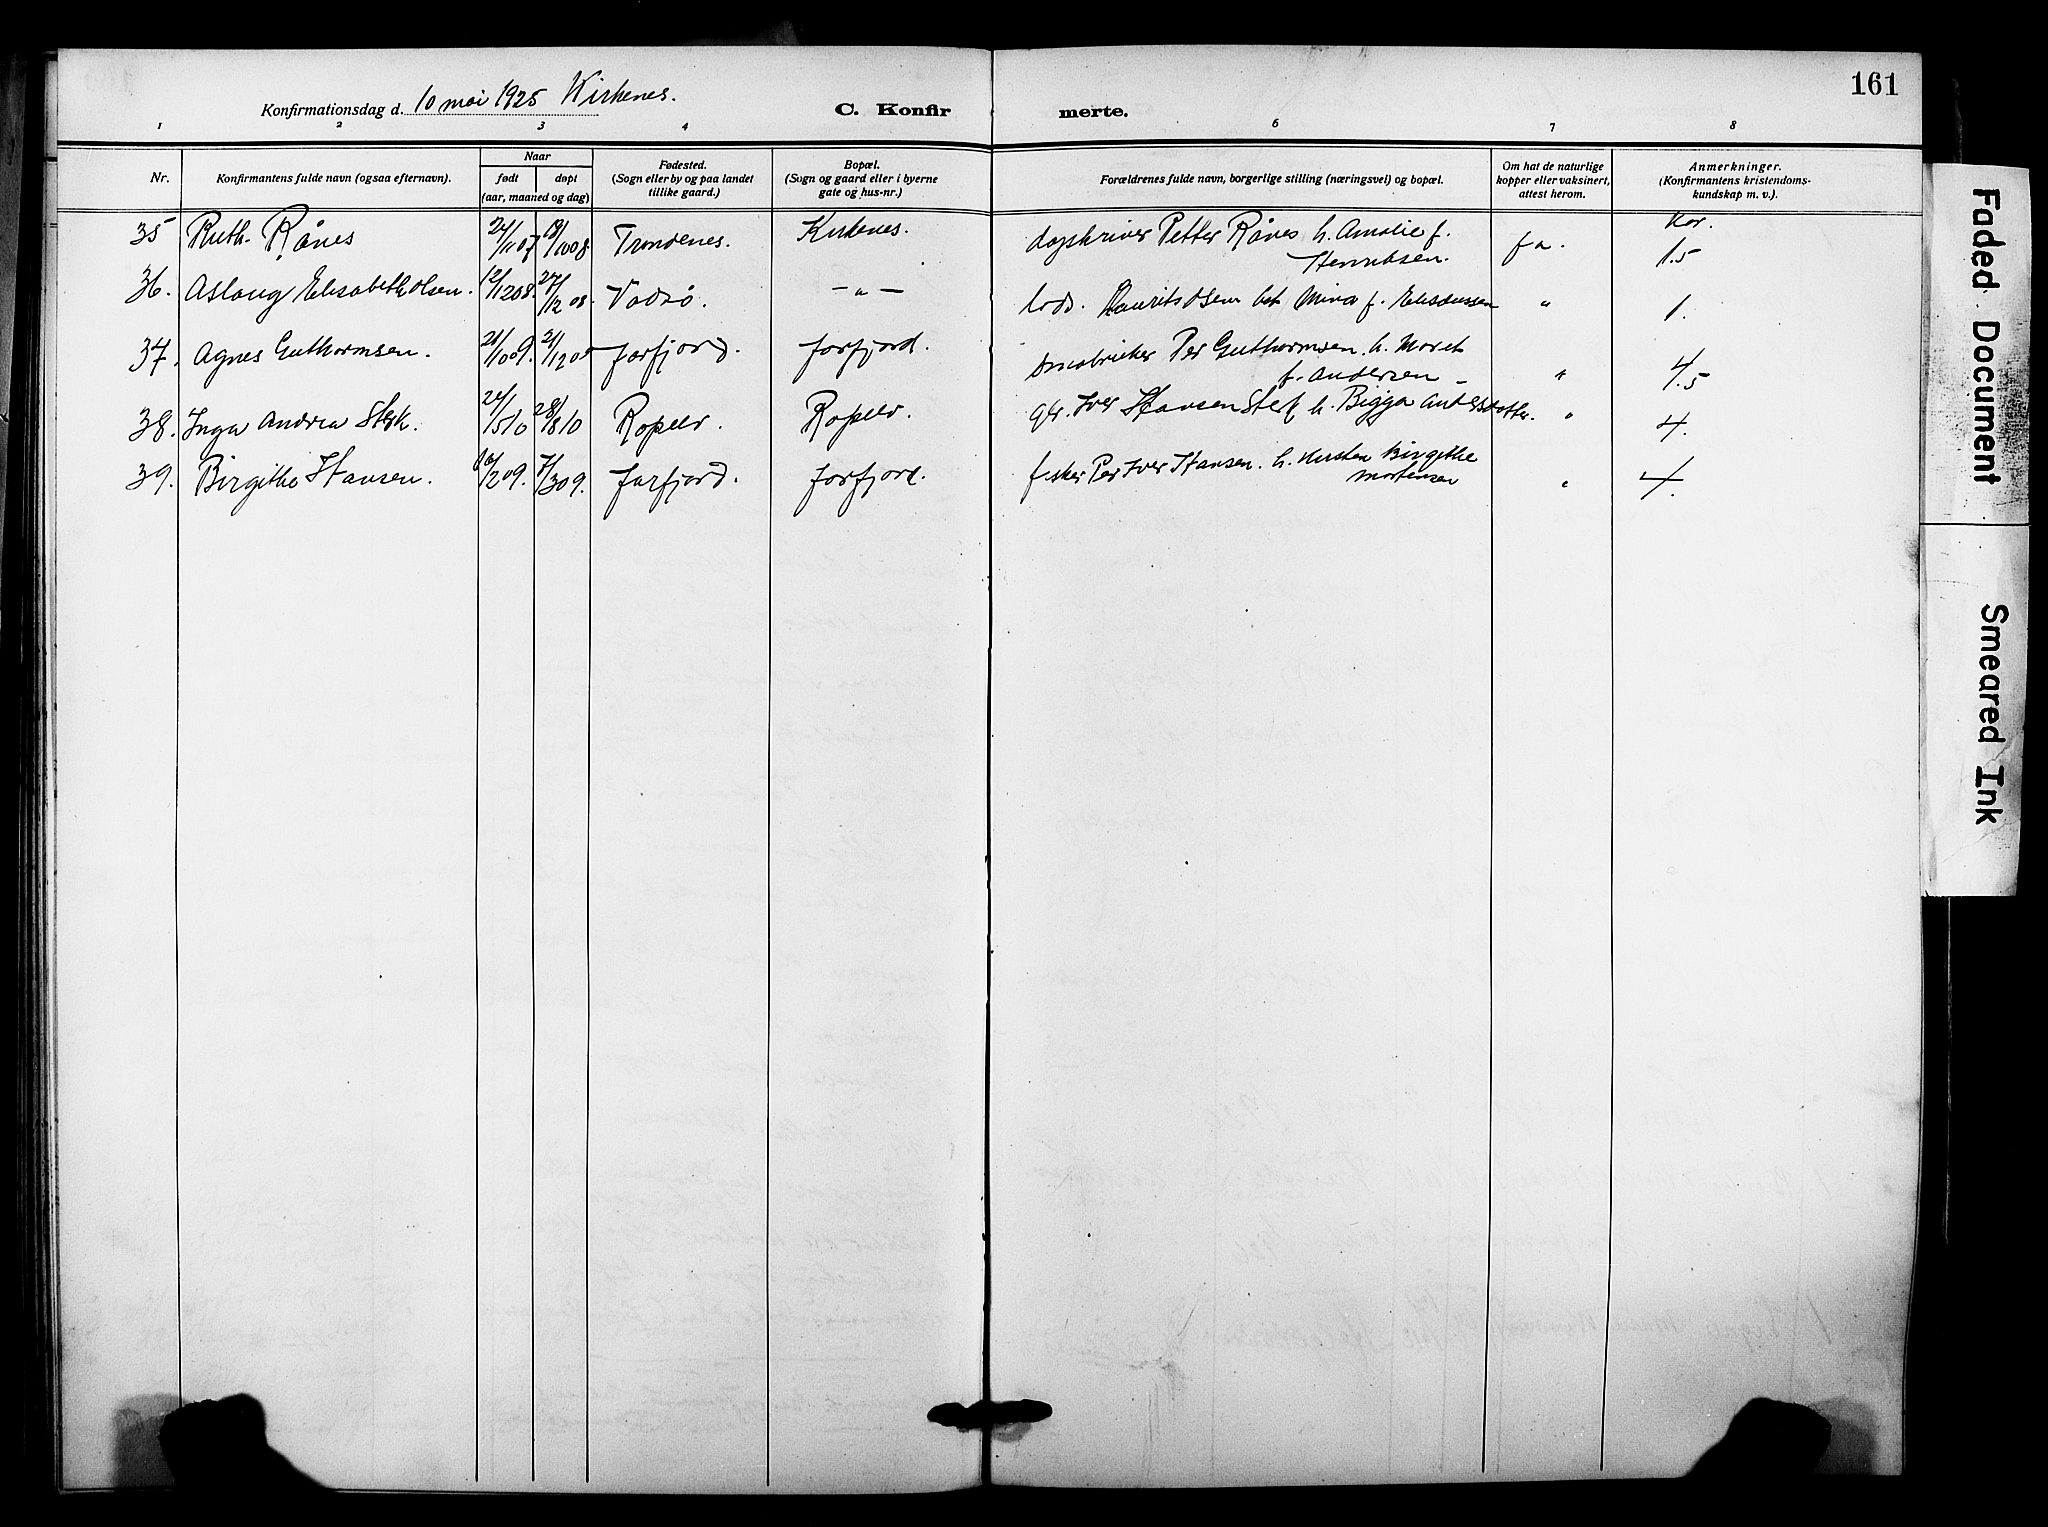 161
Konfirmationsdag d. 10 mai 1925 Kirkenes.
C. Konfirmerte.
1 2 3 4 5 6 7 8
Nr.
Konfirmantens fulde navn (ogsaa efternavn).
Naar
født
døpt
(aar, maaned og dag)
Fødested.
(Sogn eller by og paa landet
tillike gaard.)
Bopæl.
(Sogn og gaard eller i byerne
gate og hus-nr.)
Forældrenes fulde navn, borgerlige stilling (næringsvei) og bopæl.
Om hat de naturlige
kopper eller vaksinert,
attest herom.
Anmerkninger.
(Konfirmantens kristendoms-
kundskap m. v.).
35 Ruth Rånes 24/11 07 Trondenes. Kirkenes. Petter Rånes h. Amalie f. Henriksen. fa. kar. 1.5
36. Aslaug Elisabeth Olsen. 12/12 08. 27/12 08. Vadsø. — " — Laurits Olsen Mina f. " 1.
37. Agnes Guthormsen. 21/10 09. Jarfjord. Jarfjord. småbruker Per Guthormsen. h. Maret f. Andersen — " 4.5
38. Inga Andrea Sterk. 24/5 10 28/8 10 Ropelv. Ropelv. Iver Hansen Sterk h. Bigga Andersdotter. " 4.
39. Birgithe Hansen. 10/2 09. 7/3 09. Jarfjord. Jarfjord. fisker Per Iver Hansen. h. Kirsten Birgithe Mortensen " 4.
Faded Document
Smeared Ink